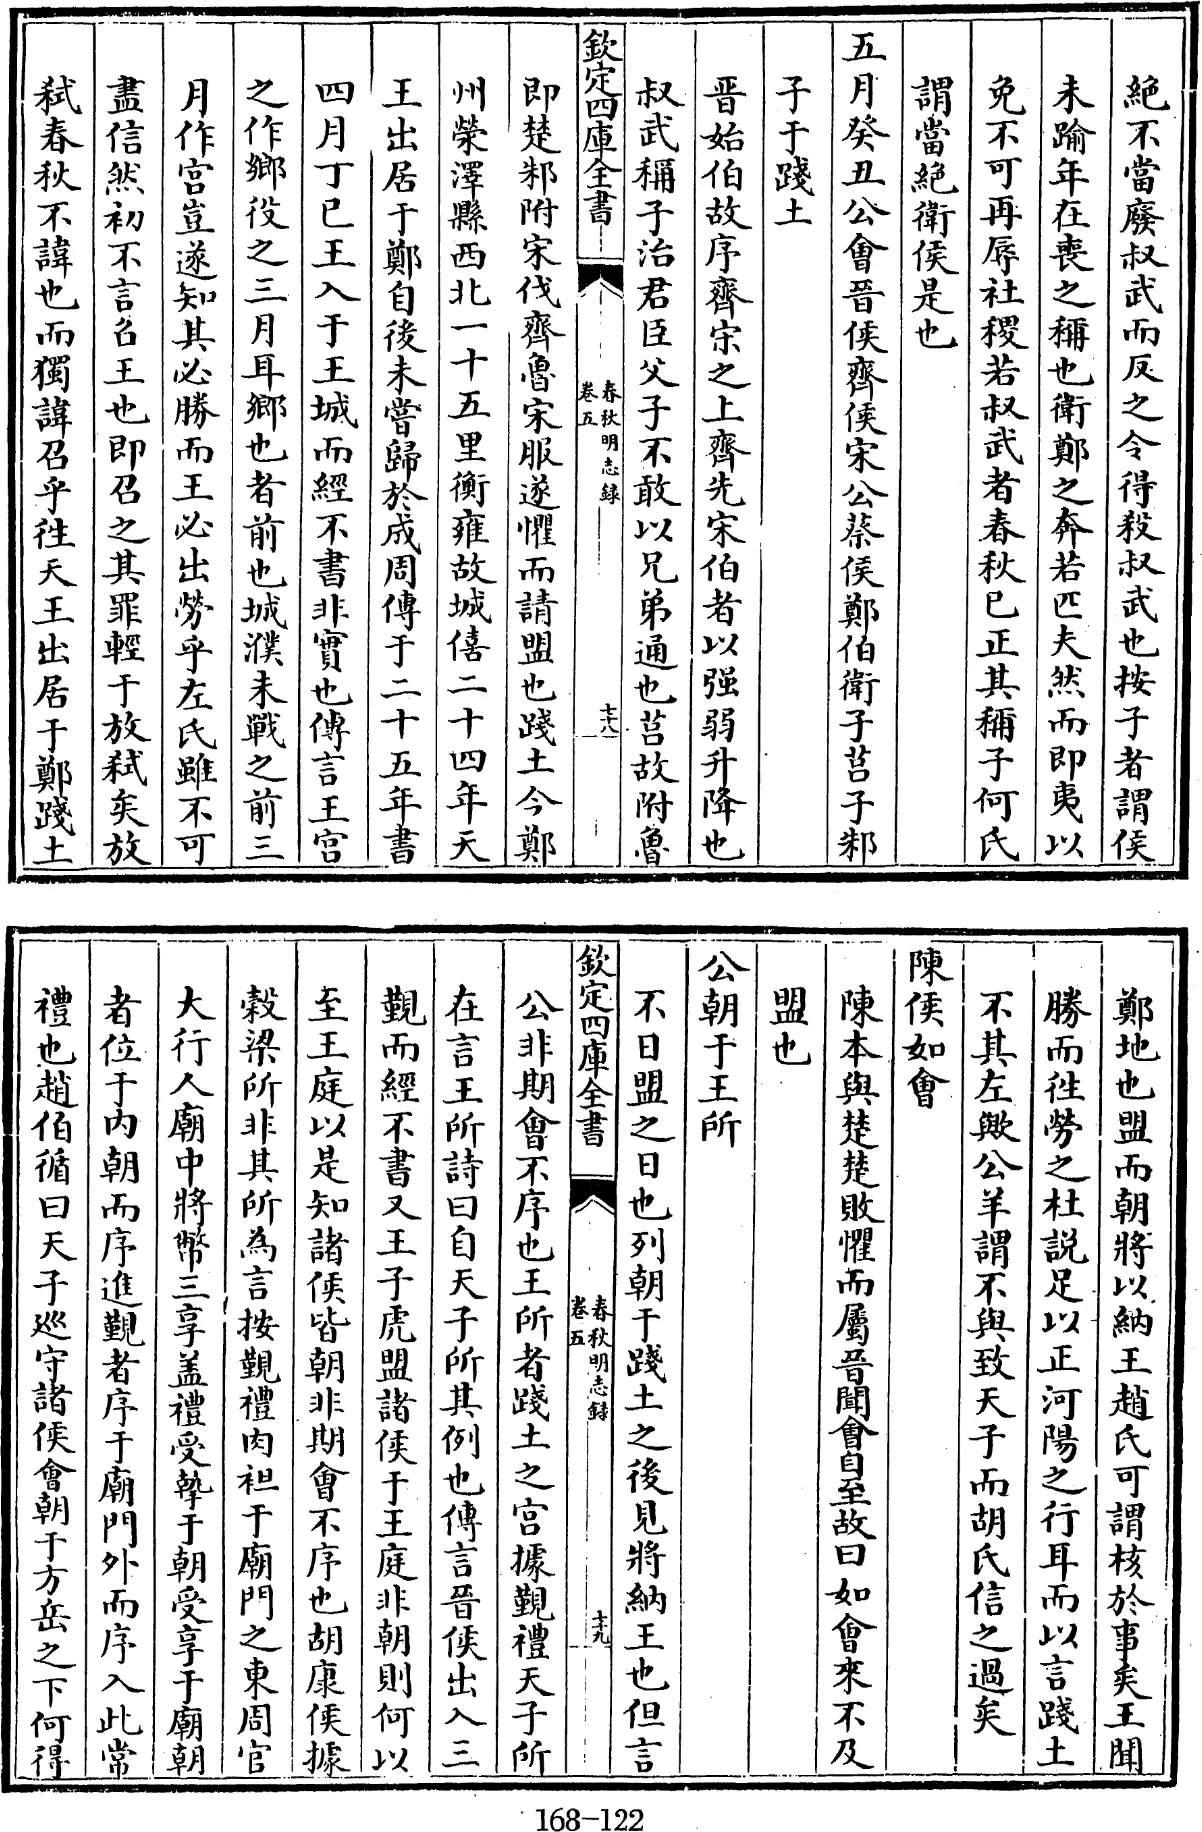 絶不當廢叔武而反之令得殺叔武也按子者謂侯
未踰年在喪之稱也衛鄭之奔若匹夫然而即夷以
免不可再辱社稷若叔武者春秋已正其稱子何氏
謂當絶衛侯是也
五月癸丑公會晉侯齊侯宋公蔡侯鄭伯衛子莒子邾
子于踐土
晋始伯故序齊宋之上齊先宋伯者以强弱升降也
叔武稱子治君臣父子不敢以兄弟通也莒故附魯
欽定四庫全書
春秋明志録
卷五
七十八
即楚邾附宋伐齊魯宋服遂懼而請盟也踐土今鄭
州滎澤縣西北一十五里衡雍故城僖二十四年天
王出居于鄭自後未嘗歸於成周傳于二十五年書
四月丁巳王入于王城而經不書非實也傳言王宫
之作鄉役之三月耳鄉也者前也城濮未戰之前三
月作宫豈遂知其必勝而王必出勞乎左氏雖不可
盡信然初不言召王也即召之其罪輕于放弑矣放
弑春秋不諱也而獨諱召乎徃天王出居于鄭踐土
鄭地也盟而朝將以納王趙氏可謂核於事矣王聞
勝而徃勞之杜説足以正河陽之行耳而以言踐土
不其左歟公羊謂不與致天子而胡氏信之過矣
陳侯如會
陳本與楚楚敗懼而屬晋聞會自至故曰如會來不及
盟也
公朝于王所
不日盟之日也列朝于踐土之後見將納王也但言
欽定四庫全書
春秋明志録
卷五
七十九
公非期會不序也王所者踐土之宫據覲禮天子所
在言王所詩曰自天子所其例也傳言晉侯出入三
覲而經不書又王子虎盟諸侯于王庭非朝則何以
至王庭以是知諸侯皆朝非期會不序也胡康侯據
穀梁所非其所為言按覲禮肉袒于廟門之東周官
大行人廟中將幣三享盖禮受摯于朝受享于廟朝
者位于内朝而序進覲者序于廟門外而序入此常
禮也趙伯循曰天子巡守諸侯會朝于方岳之下何得
168-122